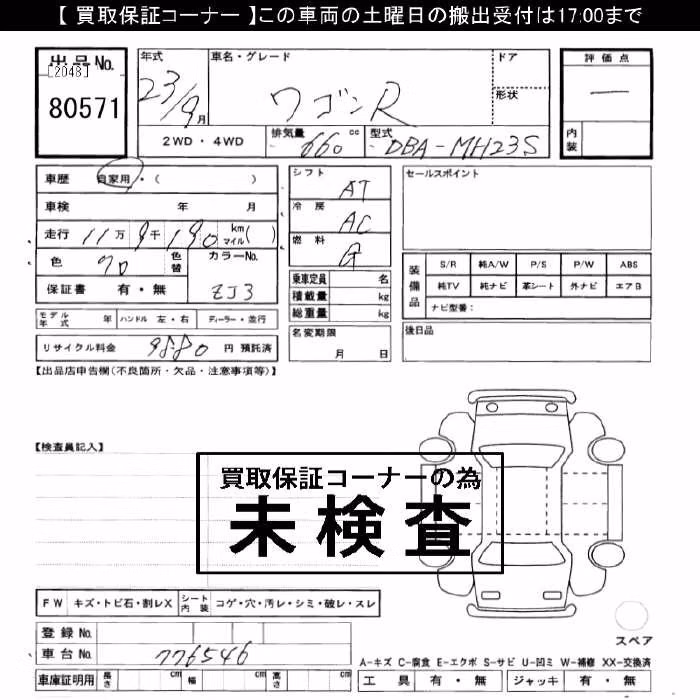 【 買取保証コーナー 】この車両の土曜日の搬出受付は17:00まで
出品No.
[2048]
80571
年式
23/9月
車名・グレード
ワゴンR
ドア
形状
評価点
―
内装
2WD・4WD
排気量
660 cc
型式
DBA-MH23S
車歴 自家用・( )
車検 年 月
走行 11万9千190 km マイル( )
色 クロ 色替
カラーNo.
ZJ3
保証書 有・無
モデル年式 年 ハンドル 左・右 ディーラー・並行
リサイクル料金 9880 円 預託済
シフト AT
冷房 AC
燃料 G
乗車定員 名
積載量 kg
総重量 kg
名変期限
月 日
セールスポイント
装備品
S/R 純A/W P/S P/W ABS
純TV 純ナビ 革シート 外ナビ エアB
ナビ型番:
後日品
【出品店申告欄(不良箇所・欠品・注意事項等)】
【検査員記入】
買取保証コーナーの為
未検査
FW キズ・トビ石・割レX シート内装 コゲ・穴・汚レ・シミ・破レ・スレ
登録No.
車台No. 776546
車庫証明用 長さ cm 幅 cm 高さ cm
スペア
A-キズ C-腐食 E-エクボ S-サビ U-凹ミ W-補修 XX-交換済
工具 有・無 ジャッキ 有・無